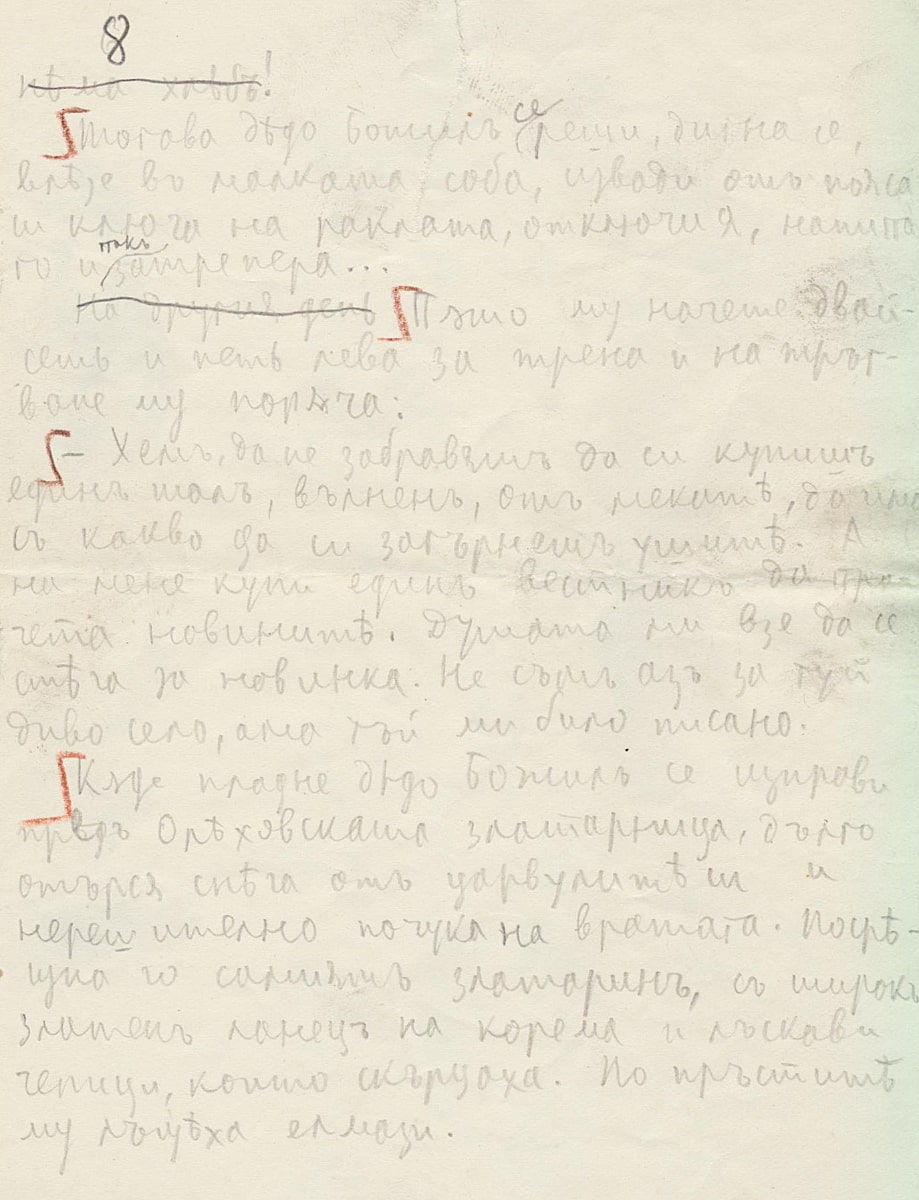 8
нѣма хлѣбъ!
Тогава дѣдо Божилъ се реши, дигна се,
влѣзе въ малката соба, извади отъ пояса
си ключа на раклата, отключи я, напипа
го и пакъ затрепера...
На другия день Пѫшо му начете двай-
сеть и петь лева за трена и на тръг-
ване му порѫча:
— Хемъ, да не забравяшъ да си купишъ
единъ шалъ, вълненъ, отъ мекитѣ, да има
съ какво да си загърнешъ ушитѣ. А
на мене купи единъ вестникъ да про-
чета новинитѣ. Душата ми взе да се
стѣга за новинка. Не съмъ азъ за туй
диво село, ама тъй ми било писано.
Кѫде пладне дѣдо Божилъ се изправи
предъ Орѣховската златарница, дълго
отърся снѣга отъ царвулитѣ си и
нерешително почука на вратата. Посрѣ-
щна го самиятъ златаринъ, съ широкъ
златенъ ланецъ на корема и лъскави
чепици, които скърцаха. По пръститѣ
му лъщѣха елмази.